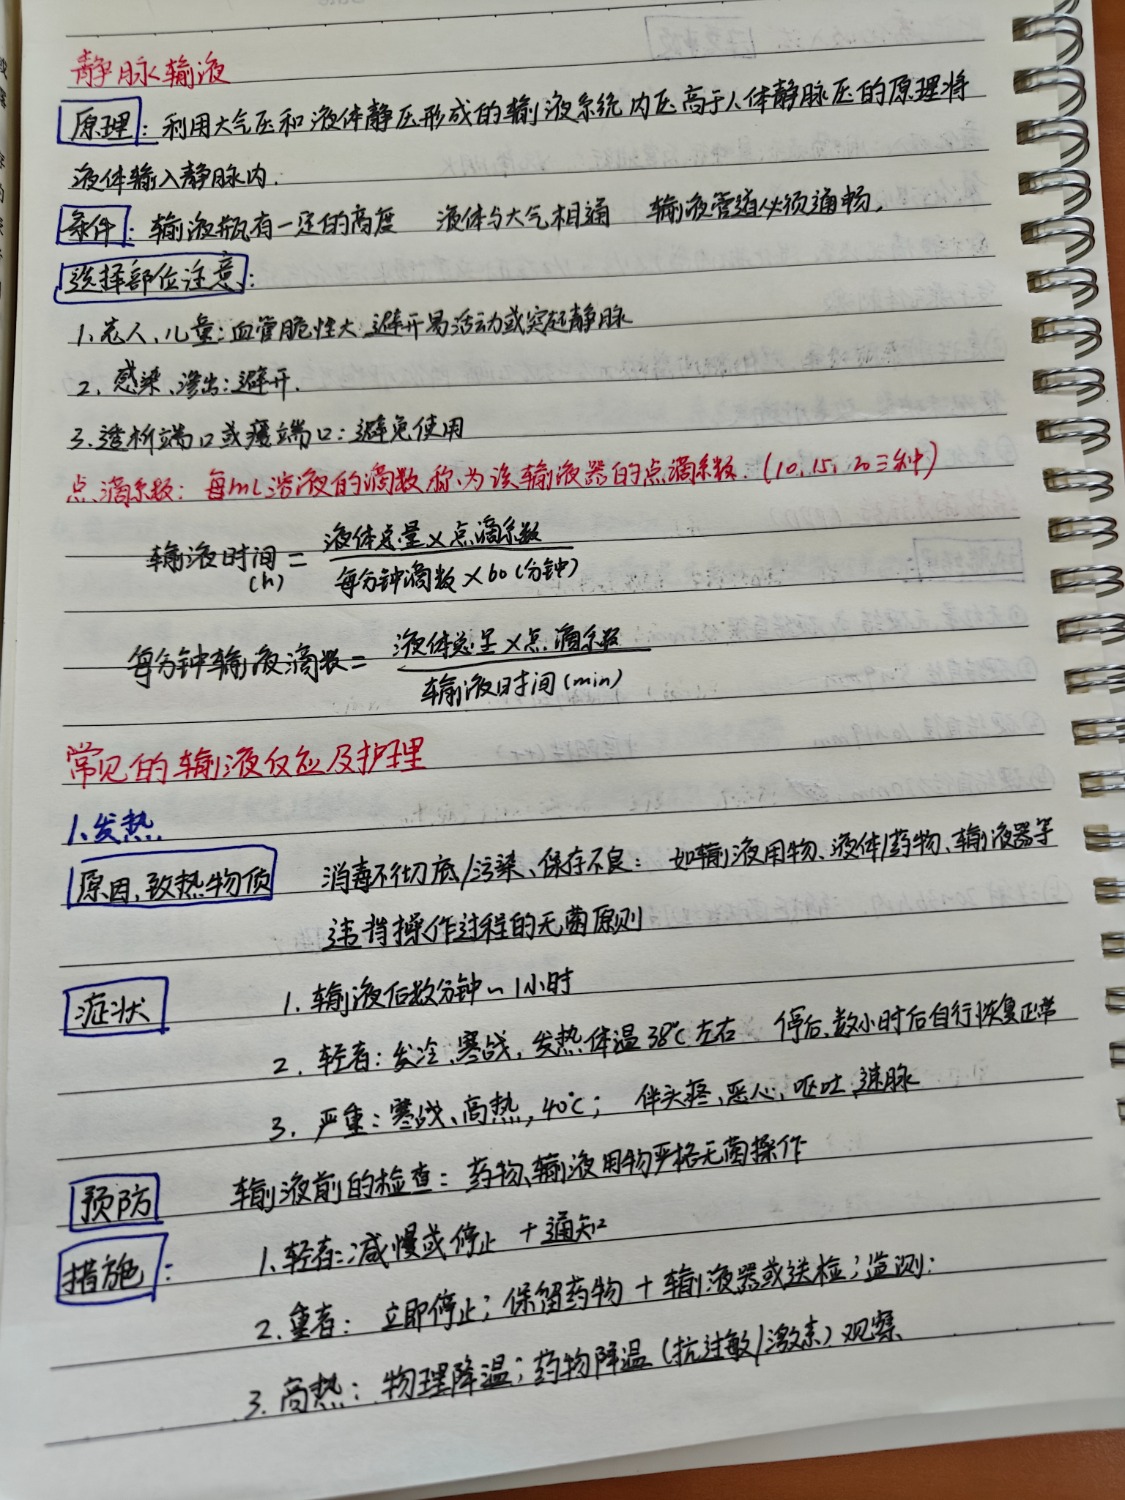 静脉输液
原理：利用大气压和液体静压形成的输液系统内压高于人体静脉压的原理将
液体输入静脉内.
条件：输液瓶有一定的高度 液体与大气相通 输液管道必须通畅.
选择部位注意：
1.老人、儿童：血管脆性大 避开易活动或突起静脉
2.感染、渗出：避开.
3.透析端口或瘘端口：避免使用
点滴系数：每mL溶液的滴数称为该输液器的点滴系数.(10.15.20三种)
输液时间(h) = 液体总量×点滴系数
每分钟滴数×60(分钟)
每分钟输液滴数= 液体总量×点滴系数
输液时间(min)
常见的输液反应及护理
1.发热
原因、致热物质 消毒不彻底/污染、保存不良：如输液用物、液体/药物、输液器等
违背操作过程的无菌原则
症状 1.输液后数分钟~1小时
2.轻者：发冷、寒战，发热体温38℃左右 停后、数小时后自行恢复正常
3.严重：寒战、高热，40℃； 伴头疼、恶心、呕吐、速脉
预防 输液前的检查：药物、输液用物严格无菌操作
措施： 1.轻者：减慢或停止 +通知
2.重者：立即停止；保留药物+输液器或送检；监测；
3.高热：物理降温；药物降温(抗过敏/激素)观察